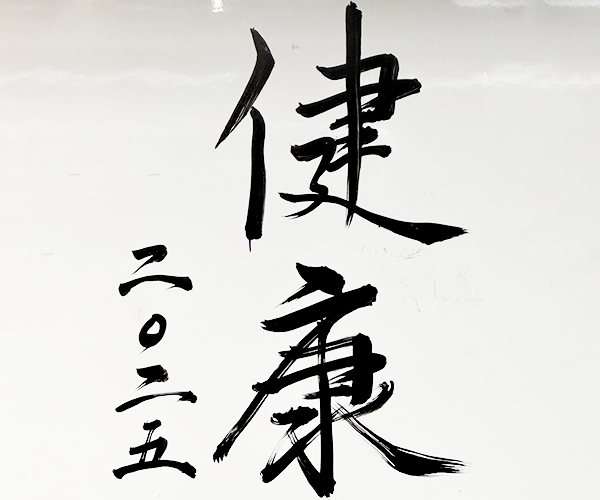 健康
二〇二五